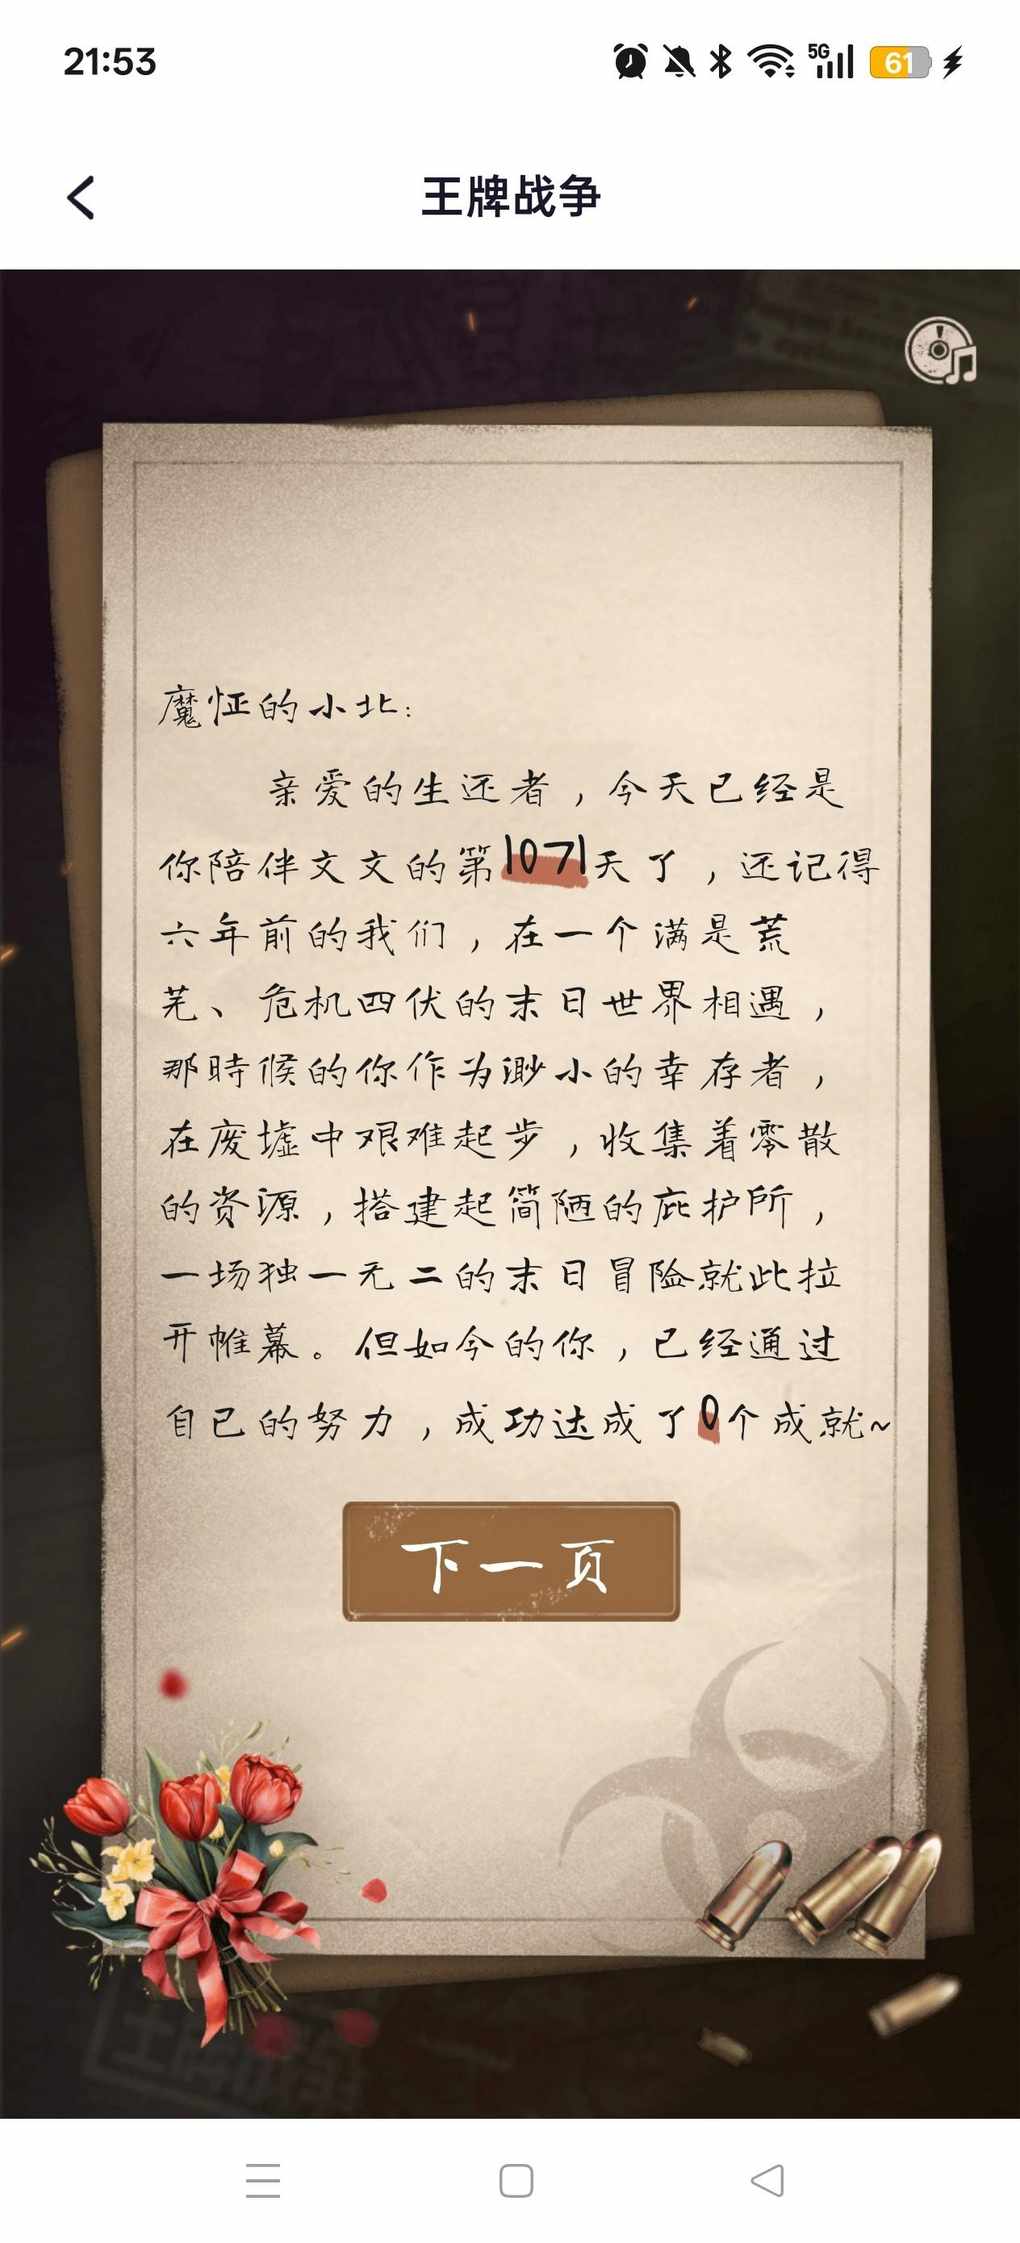 21:53
5G
61
王牌战争
魔怔的小北：
亲爱的生还者，今天已经是
你陪伴文文的第1071天了，还记得
六年前的我们，在一个满是荒
芜、危机四伏的末日世界相遇，
那時候的你作为渺小的幸存者，
在废墟中艰难起步，收集着零散
的资源，搭建起简陋的庇护所，
一场独一无二的末日冒险就此拉
开帷幕。但如今的你，已经通过
自己的努力，成功达成了0个成就~
下一页